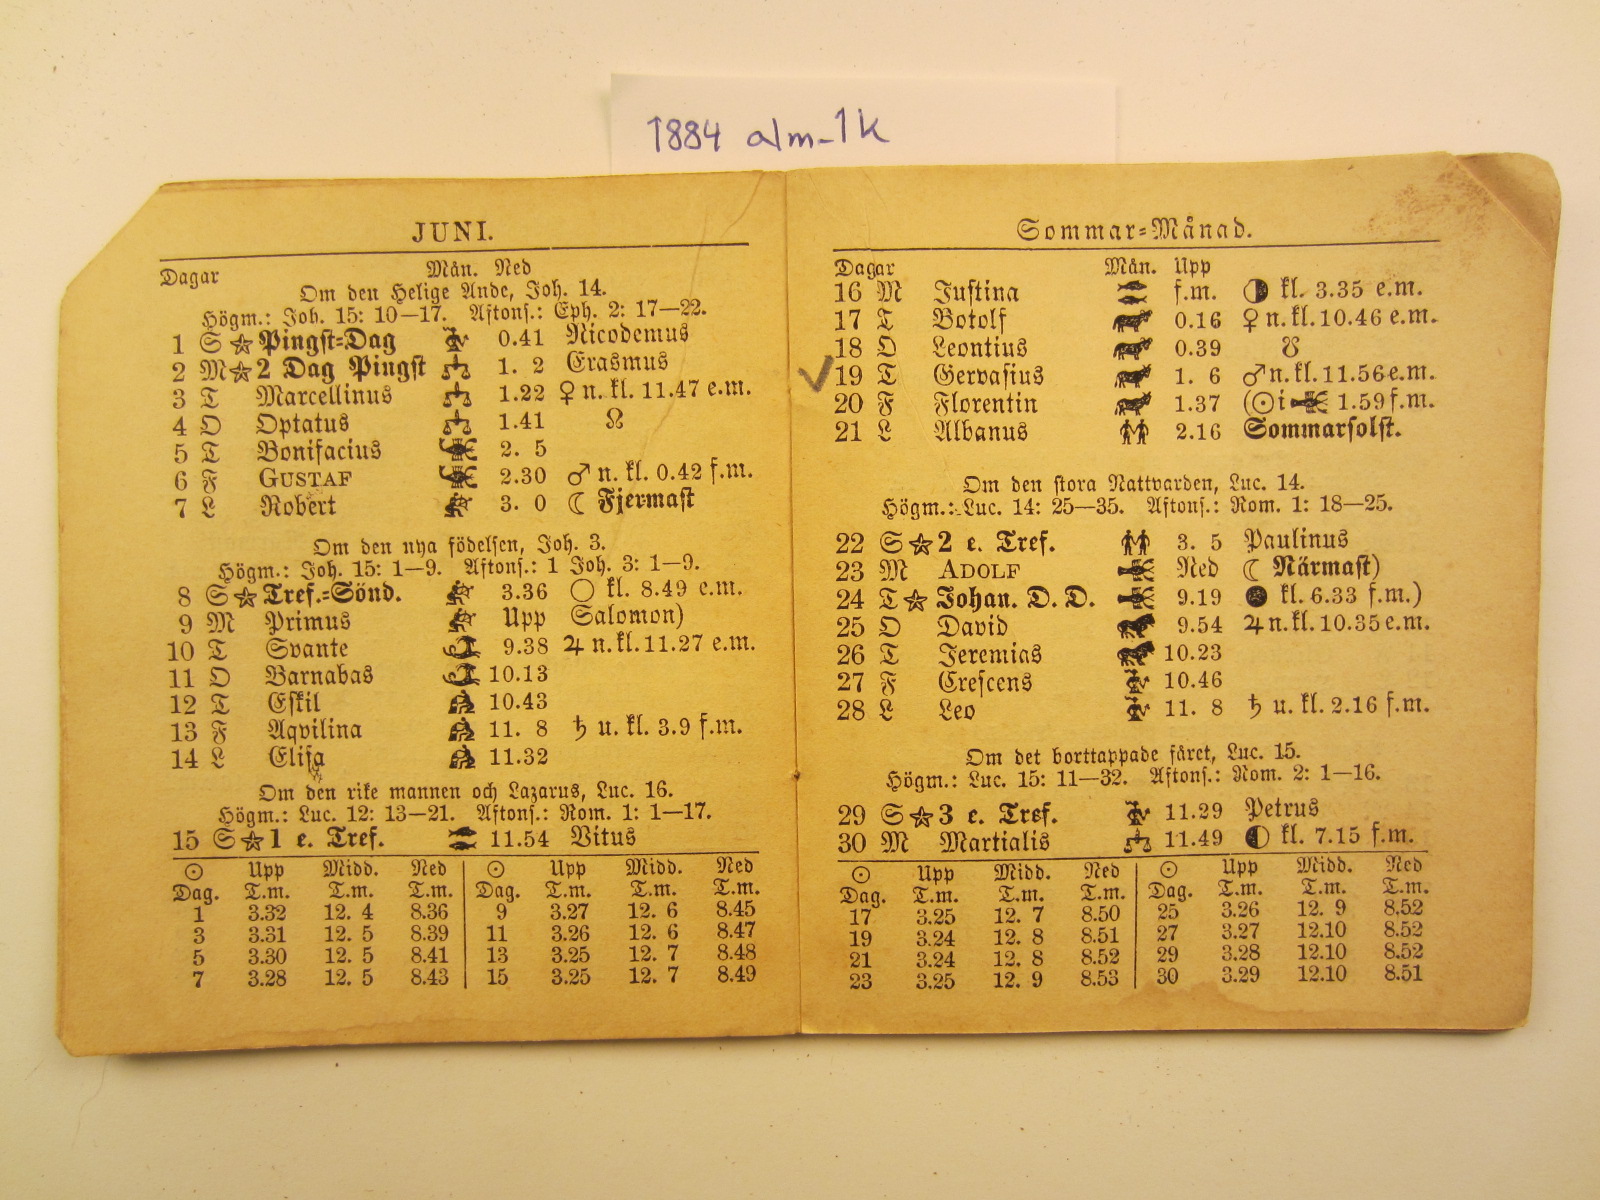 1884 alm-1k
JUNI.
Dagar Mån. Ned
Om den Helige Ande, Joh. 14.
Högm.: Joh. 15: 10—17. Aftons.: Eph. 2: 17—22.
1 S ☆ Pingst=Dag 0.41 Nicodemus
2 M ☆ 2 Dag Pingst 1. 2 Erasmus
3 T Marcellinus 1.22 ♀ n. kl. 11.47 e.m.
4 O Optatus 1.41 ☊
5 T Bonifacius 2. 5
6 F GUSTAF 2.30 ♂ n. kl. 0.42 f.m.
7 L Robert 3. 0 ☾ Fjermast
Om den nya födelsen, Joh. 3.
Högm.: Joh. 15: 1—9. Aftons.: 1 Joh. 3: 1—9.
8 S ☆ Tref.=Sönd. 3.36 ○ kl. 8.49 e.m.
9 M Primus Upp Salomon)
10 T Svante 9.38 ♃ n. kl. 11.27 e.m.
11 O Barnabas 10.13
12 T Eskil 10.43
13 F Aqvilina 11. 8 ♄ u. kl. 3.9 f.m.
14 L Elisa 11.32
Om den rike mannen och Lazarus, Luc. 16.
Högm.: Luc. 12: 13—21. Aftons.: Rom. 1: 1—17.
15 S ☆ 1 e. Tref. 11.54 Vitus
☉ Upp Midd. Ned ☉ Upp Midd. Ned
Dag. T.m. T.m. T.m. Dag. T.m. T.m. T.m.
1 3.32 12. 4 8.36 9 3.27 12. 6 8.45
3 3.31 12. 5 8.39 11 3.26 12. 6 8.47
5 3.30 12. 5 8.41 13 3.25 12. 7 8.48
7 3.28 12. 5 8.43 15 3.25 12. 7 8.49
Sommar=Månad.
Dagar Mån. Upp
16 M Justina f.m. ◑ kl. 3.35 e.m.
17 T Botolf 0.16 ♀ n. kl. 10.46 e.m.
18 O Leontius 0.39 ☋
✓ 19 T Gervasius 1. 6 ♂ n. kl. 11.56 e.m.
20 F Florentin 1.37 (☉ i ♋ 1.59 f.m.
21 L Albanus 2.16 Sommarsolst.
Om den stora Nattvarden, Luc. 14.
Högm.: Luc. 14: 25—35. Aftons.: Rom. 1: 18—25.
22 S ☆ 2 e. Tref. 3. 5 Paulinus
23 M ADOLF Ned ☾ Närmast)
24 T ☆ Johan. D. D. 9.19 ● kl. 6.33 f.m.)
25 O David 9.54 ♃ n. kl. 10.35 e.m.
26 T Jeremias 10.23
27 F Crescens 10.46
28 L Leo 11. 8 ♄ u. kl. 2.16 f.m.
Om det borttappade fåret, Luc. 15.
Högm.: Luc. 15: 11—32. Aftons.: Rom. 2: 1—16.
29 S ☆ 3 e. Tref. 11.29 Petrus
30 M Martialis 11.49 ◐ kl. 7.15 f.m.
☉ Upp Midd. Ned ☉ Upp Midd. Ned
Dag. T.m. T.m. T.m. Dag. T.m. T.m. T.m.
17 3.25 12. 7 8.50 25 3.26 12. 9 8.52
19 3.24 12. 8 8.51 27 3.27 12.10 8.52
21 3.24 12. 8 8.52 29 3.28 12.10 8.52
23 3.25 12. 9 8.53 30 3.29 12.10 8.51